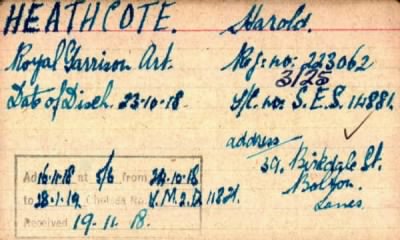 HEATHCOTE. Harold.
Royal Garrison Art. Reg: no: 223062
3125
Date of Disch. 23-10-18. S/C. no: S.E.S. 14881.
address
39, Birkdale St.
Bolton
Lancs.
Ad 16.11.18 at 5/6 from 24.10.18
to 28.1.19 Chelsea No. V.M.2.D. 11821.
Received 19.11.18.